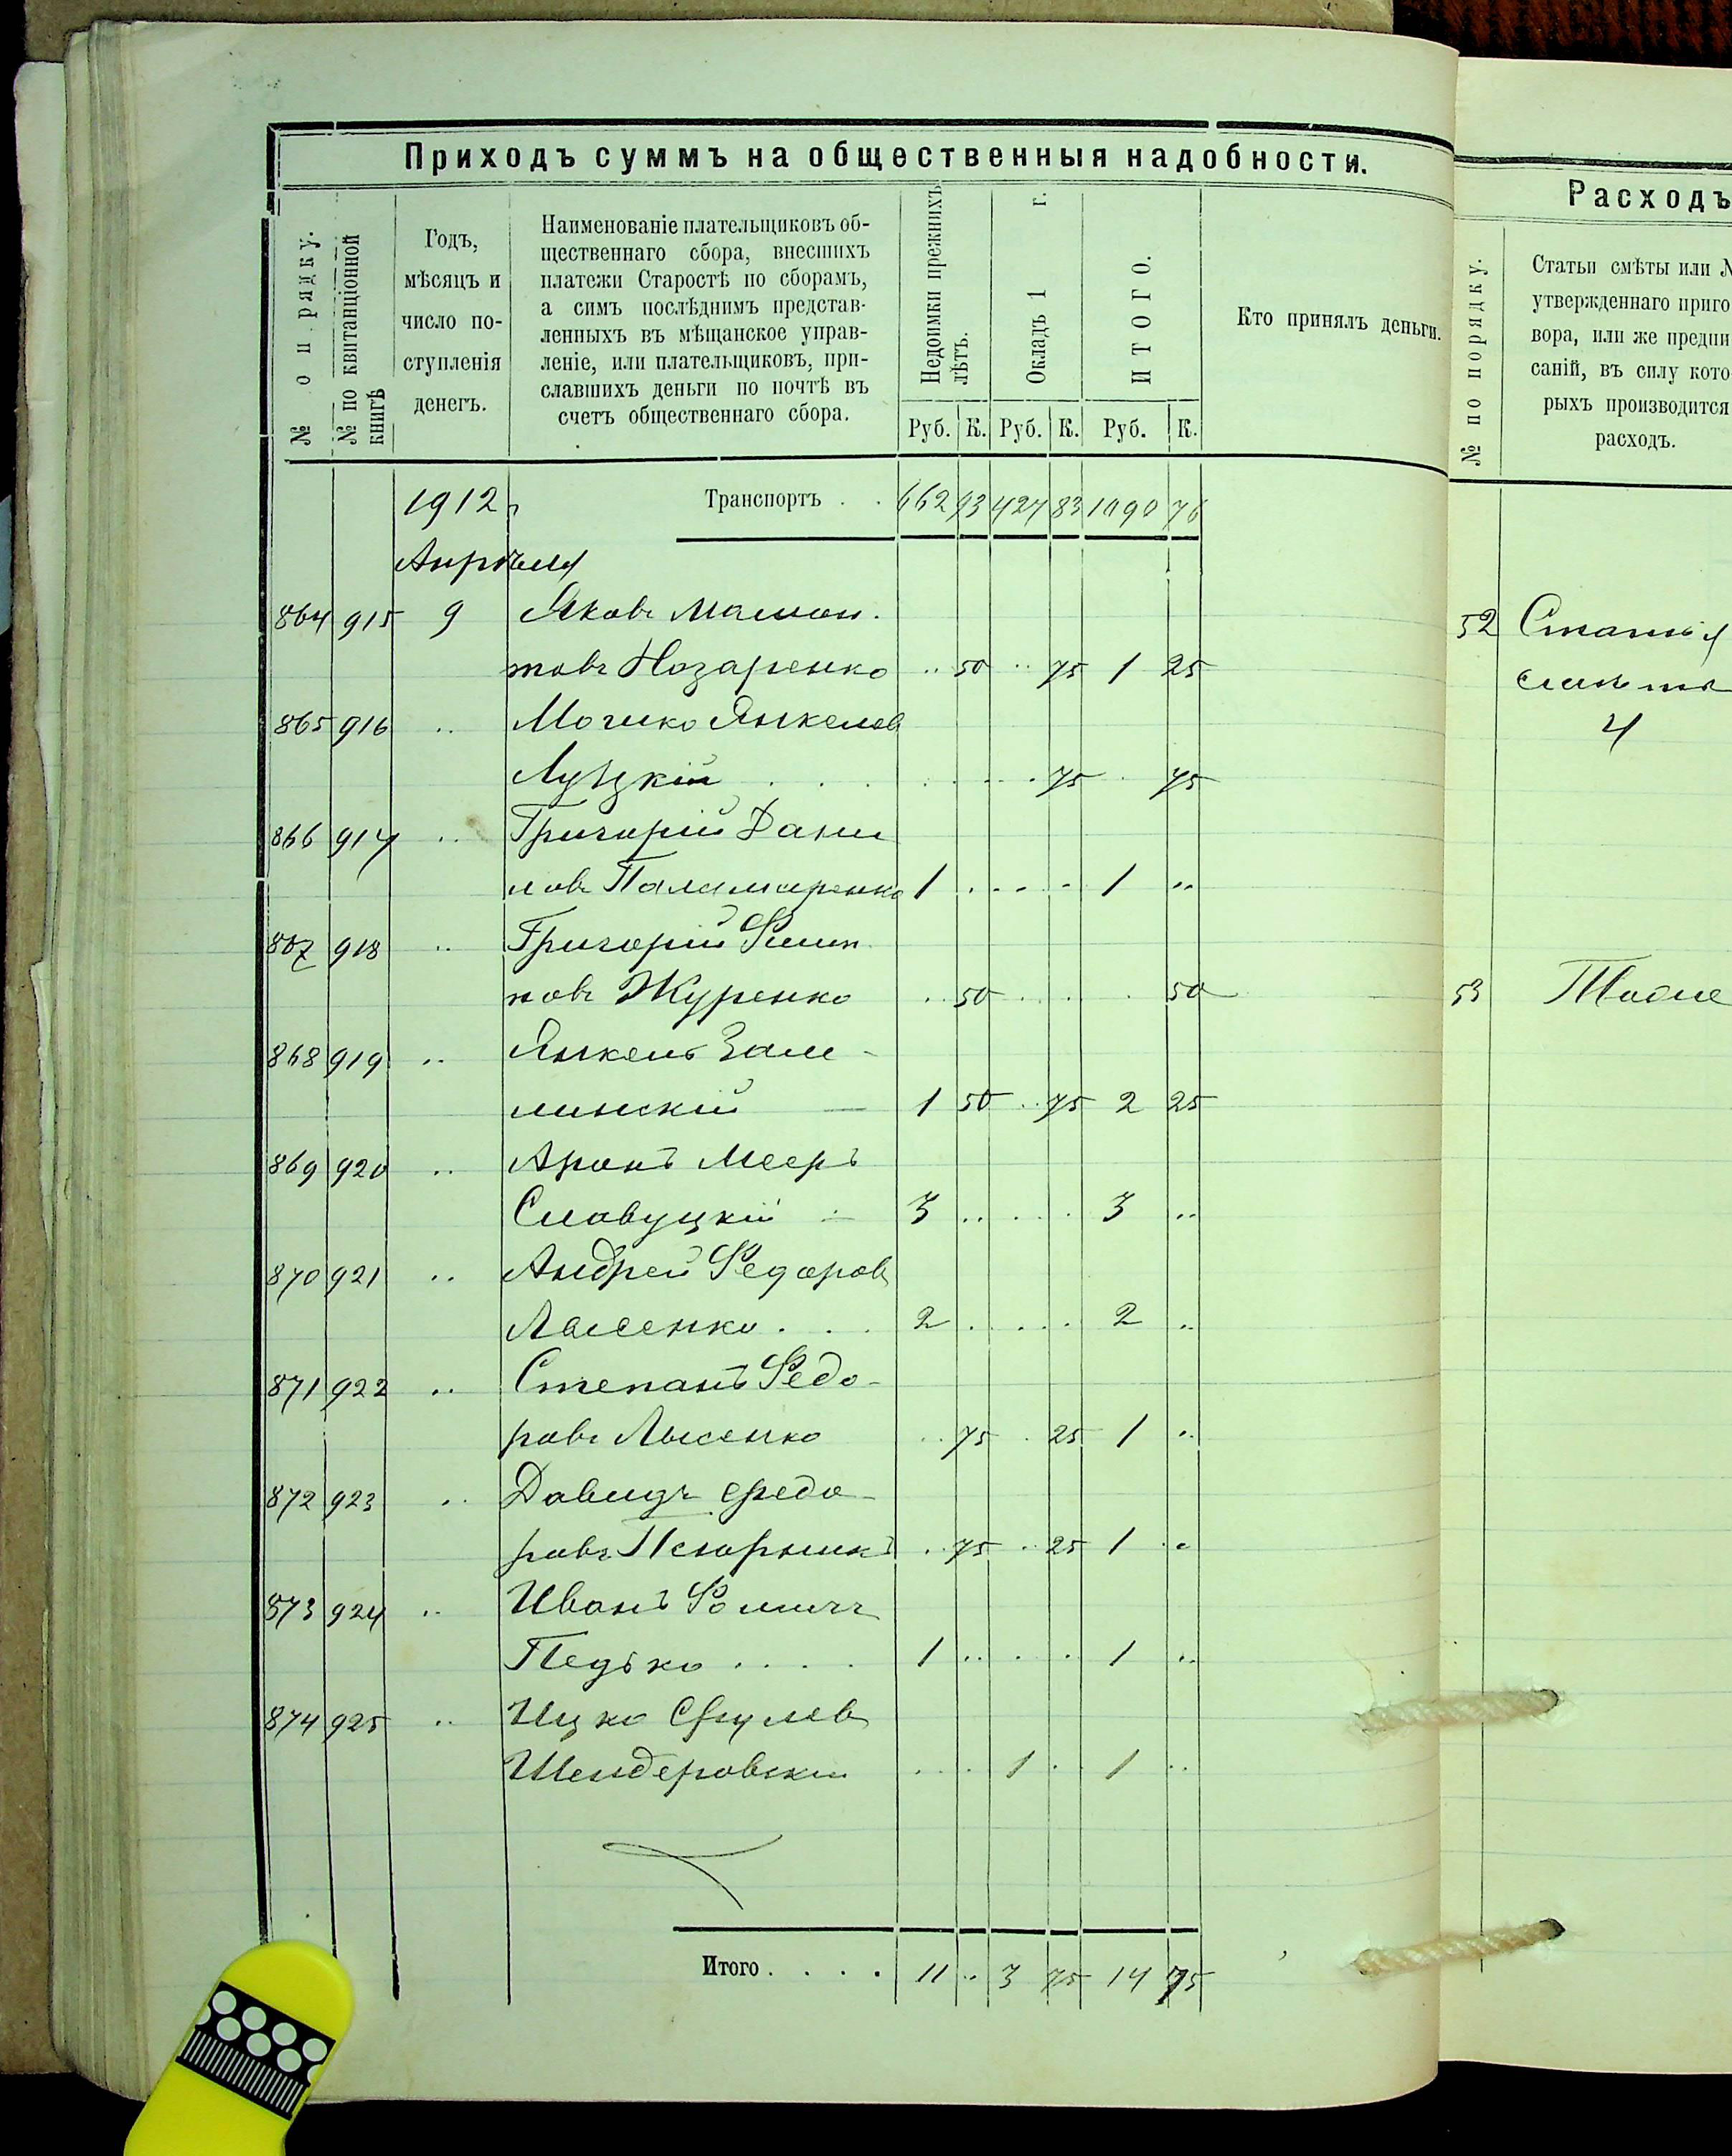 Приходъ суммъ на общественныя надобности.
№ по рядку.
№ по квитанціонной книгѣ
Годъ, мѣсяцъ и число поступленія денегъ.
Наименованіе плательщиковъ об-
щественнаго сбора, внесшихъ
платежи Старостѣ по сборамъ,
а симъ послѣднимъ представ-
ленныхъ въ мѣщанское управ-
леніе, или плательщиковъ, при-
славшихъ деньги по почтѣ въ
счетъ общественнаго сбора.
Недоимки прежнихъ лѣтъ.
Окладъ 1 г.
ИТОГО.
Кто принялъ деньги.
Руб. К. Руб. К. Руб. К.
1912 г Транспортъ . . 662 93 427 83 1090 76
Апрѣля
864 915 9 Яковъ Мамон.
товъ Назаренко .. 50 .. 75 1 25
865 916 .. Мошко Янкелев
Луцкій . . . 75 . 75
866 917 .. Григорій Дани
ловъ Паламаренко 1 . . . . 1 ..
867 918 .. Григорій Филип
повъ Журенко .. 50 . . . . 50
868 919 .. Янкель Зам-
линскій — 1 50 .. 75 2 25
869 920 .. Аронъ Мееръ
Славуцкій - 3 .. . . . 3 ..
870 921 .. Андрей Федоров
Лысенко . . . 2 . . . . 2 ..
871 922 .. Степанъ Федо-
ровъ Лысенко .. 75 . 25 1 ..
872 923 .. Давидъ Федо-
ровъ .. 75 . 25 1 ..
873 924 .. Иванъ Фомичъ
Педько . . . . 1 .. . . . 1 ..
874 925 .. Ицко Срулев
Шендеровскій . . . 1 . 1 ..
Итого . . . . 11 .. 3 75 14 75
Расходъ
№ по порядку.
Статьи смѣты или №
утвержденнаго приго
вора, или же предпи
саній, въ силу кото
рыхъ производится
расходъ.
52 Статья
смѣты
4
53 Тоже